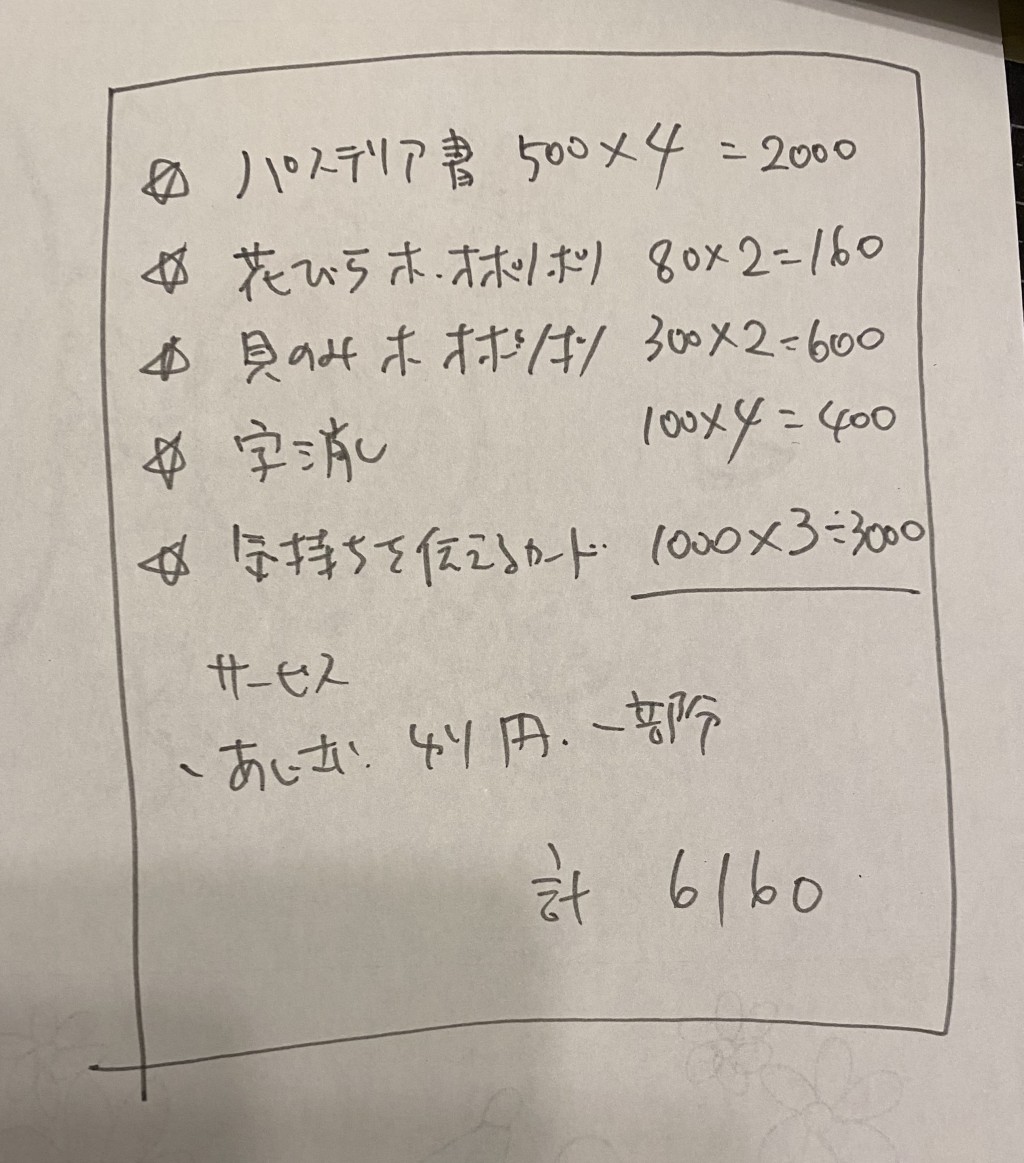 ☆ パステリア書 500×4=2000
☆ 花びらホ.オポリポリ 80×2=160
☆ 貝のみ ホ オポリポリ 300×2=600
☆ 字消し 100×4=400
☆ 気持ちを伝えるカード 1000×3=3000
サービス
、円.一部
計 6160